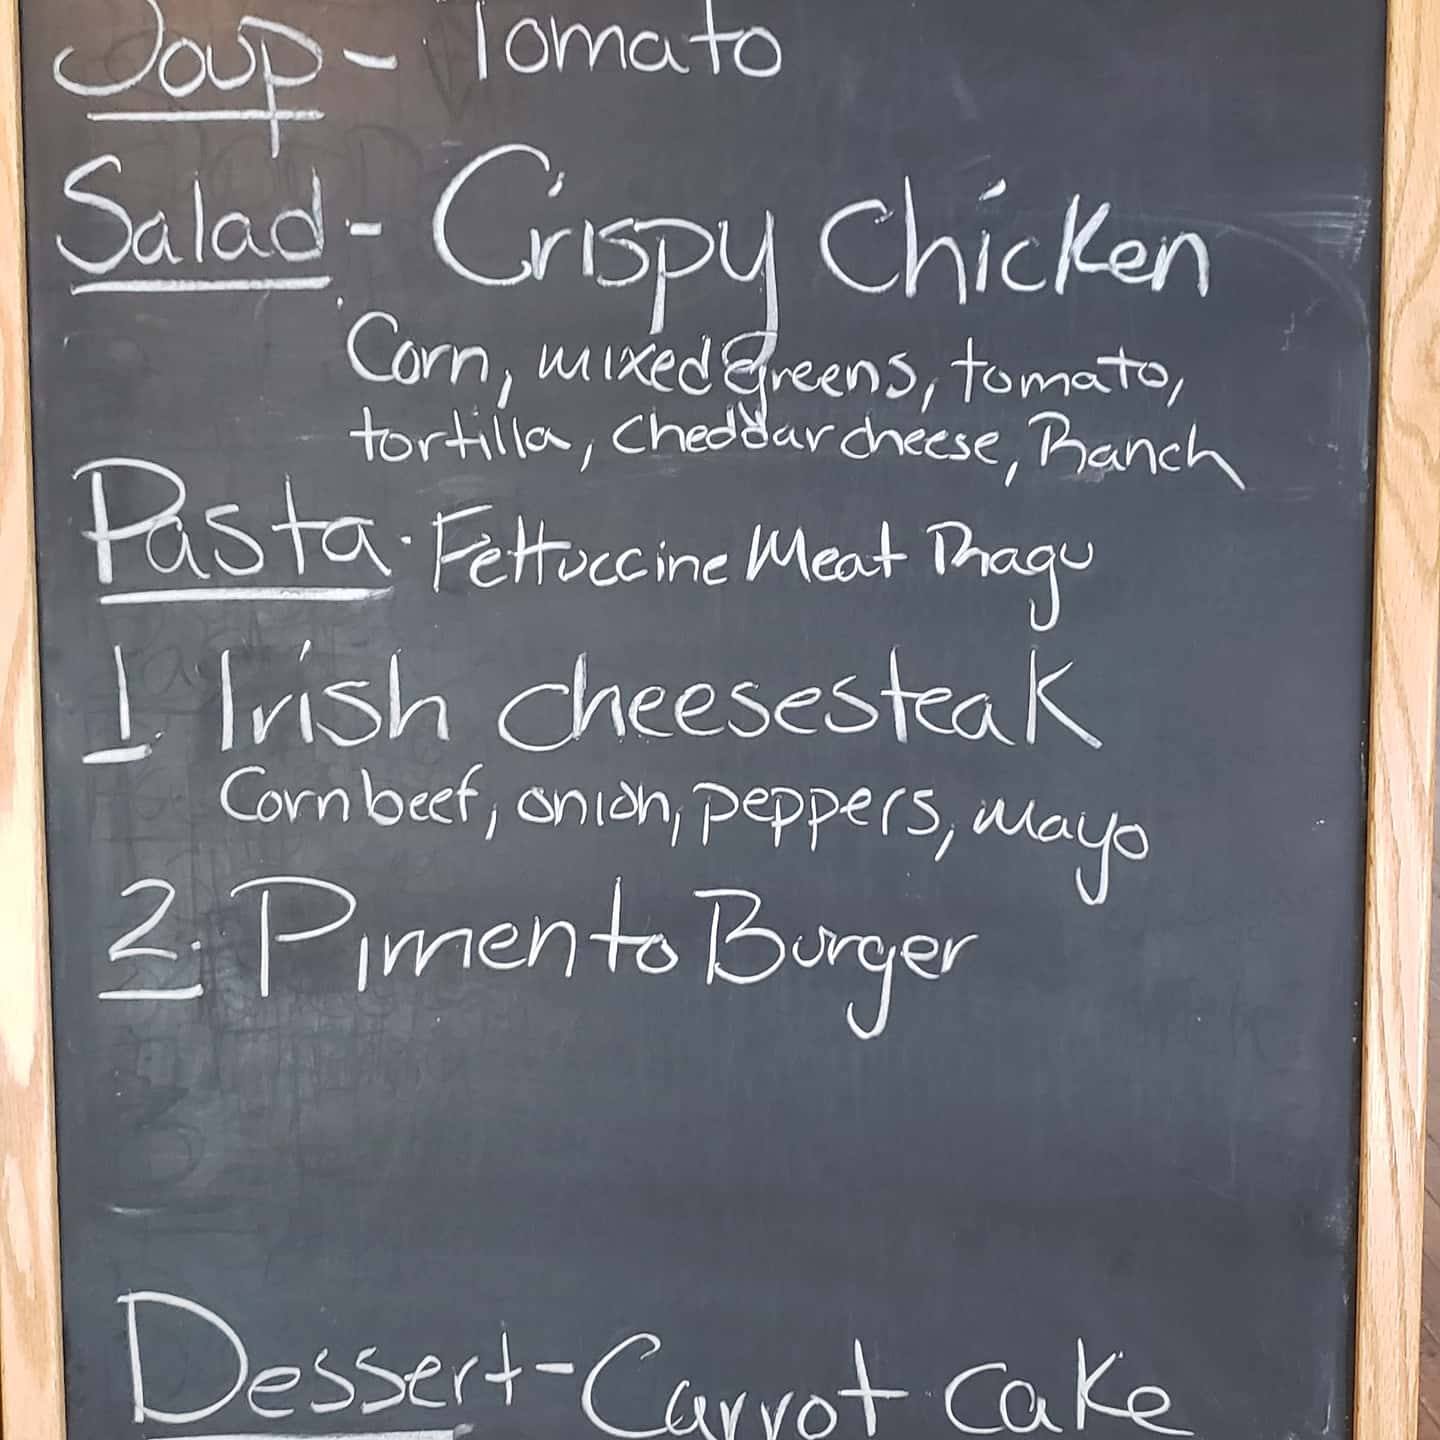 Soup - Tomato
Salad - Crispy Chicken
Corn, mixed greens, tomato,
tortilla, cheddar cheese, Ranch
Pasta. Fettuccine Meat Ragu
1 Irish cheesesteak
Corn beef, onion, peppers, mayo
2. Pimento Burger
Dessert - Carrot cake